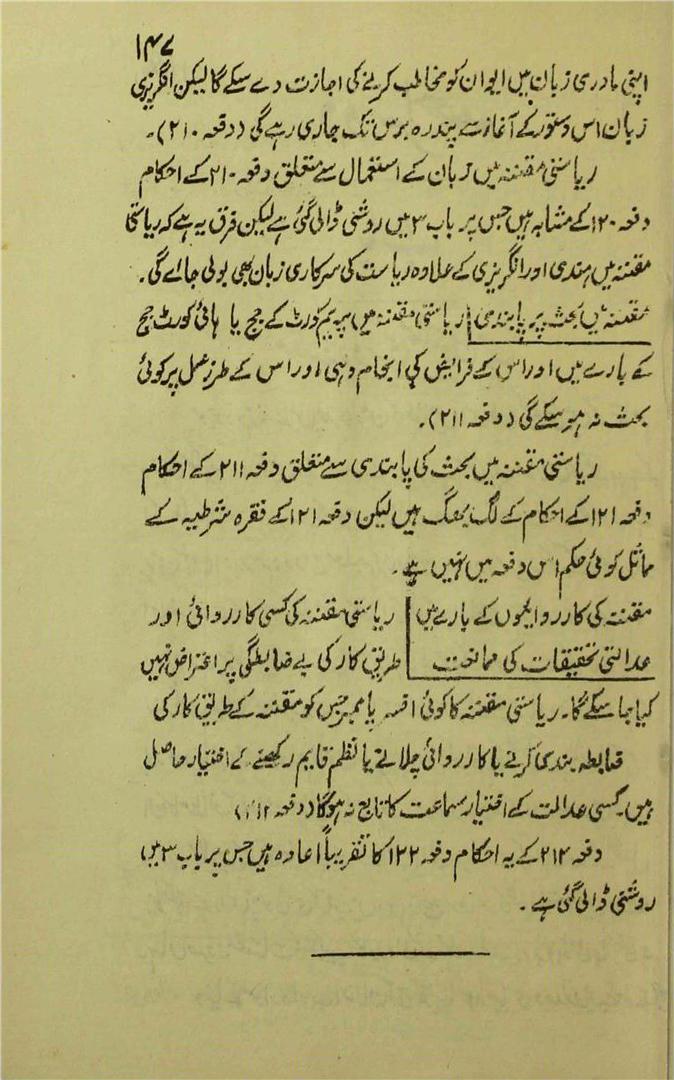 ۱۴۷
اپنی مادری زبان میں ایوان کو مخاطب کرنے کی اجازت دے سکے گا لیکن انگریزی
زبان اس دستور کے آغاز سے پندرہ برس تک جاری رہے گی (دفعہ ۲۱۰)۔
ریاستی مقننہ میں زبان کے استعمال سے متعلق دفعہ ۲۱۰ کے احکام
دفعہ ۱۲۰ کے مشابہ ہیں جس پر باب ۳ میں روشنی ڈالی گئی ہے لیکن فرق یہ ہے کہ ریاستی
مقننہ میں ہندی اور انگریزی کے علاوہ ریاست کی سرکاری زبان بھی بولی جائے گی۔
مقننہ میں بحث پر پابندی ریاستی مقننہ میں سپریم کورٹ کے جج یا ہائی کورٹ جج
کے بارے میں اور اس کے فرایض کی انجام دہی اور اس کے طرز عمل پر کوئی
بحث نہ ہو سکے گی (دفعہ ۲۱۱)۔
ریاستی مقننہ میں بحث کی پابندی سے متعلق دفعہ ۲۱۱ کے احکام
دفعہ ۱۲۱ کے احکام کے لگ بھگ ہیں لیکن دفعہ ۱۲۱ کے فقرہ شرطیہ کے
مماثل کوئی حکم اس دفعہ میں نہیں ہے۔
مقننہ کی کارروایوں کے بارے میں ریاستی مقننہ کی کسی کارروائی اور
عدالتی تحقیقات کی ممانعت طریق کار کی بے ضابطگی پر اعتراض نہیں
کیا جا سکے گا۔ ریاستی مقننہ کا کوئی افسر یا ممبر جس کو مقننہ کے طریق کار کی
ضابطہ بندی کرنے یا کارروائی چلانے یا نظم قایم رکھنے کے اختیار حاصل
ہیں۔ کسی عدالت کے اختیار سماعت کا تابع نہ ہوگا (دفعہ ۲۱۲)
دفعہ ۲۱۲ کے یہ احکام دفعہ ۱۲۲ کا تقریباً اعادہ ہیں جس پر باب ۳ میں
روشنی ڈالی گئی ہے۔